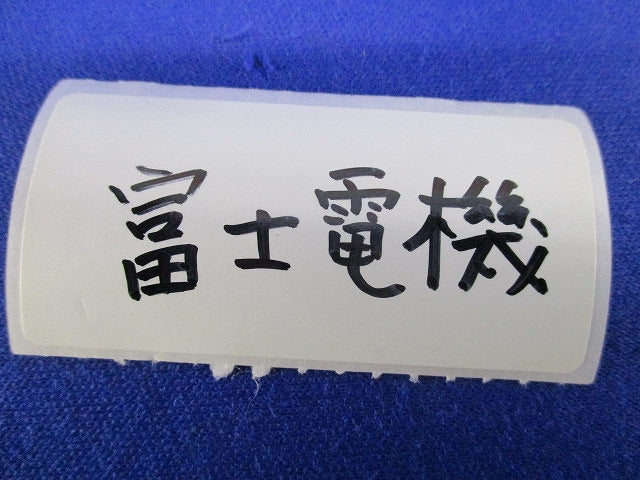 富士電機